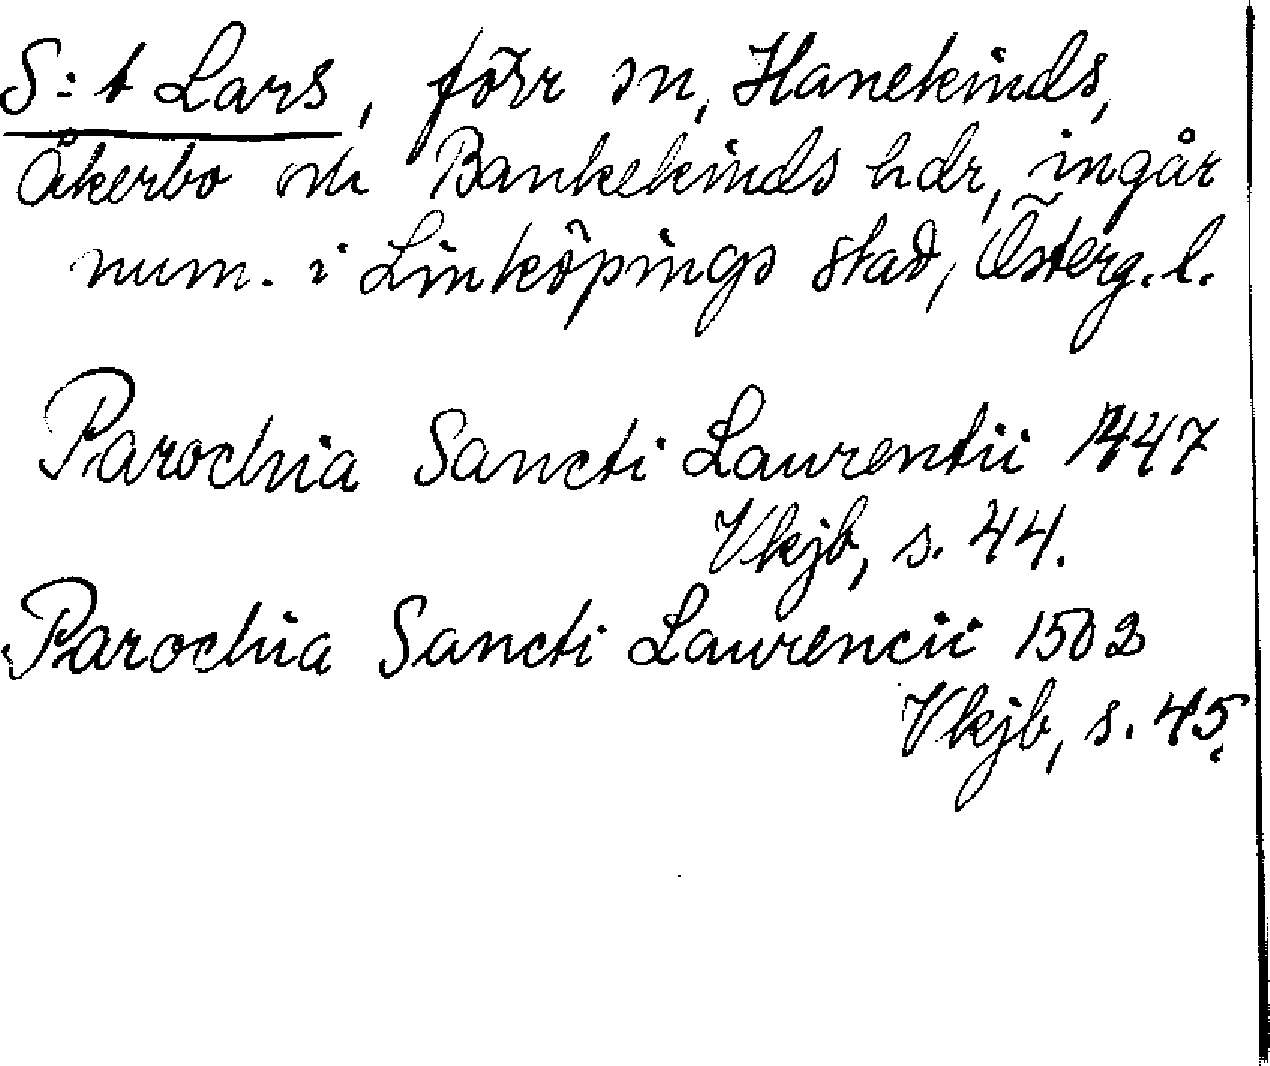 S:t Lars, förr sn, Hanekinds,
Åkerbo och Bankekinds hdr, ingår
num. i Linköpings stad, Österg. l.
Parochia Sancti Laurentii 1447
Vkjb, s. 44.
Parochia Sancti Laurencii 1502
Vkjb, s. 45.